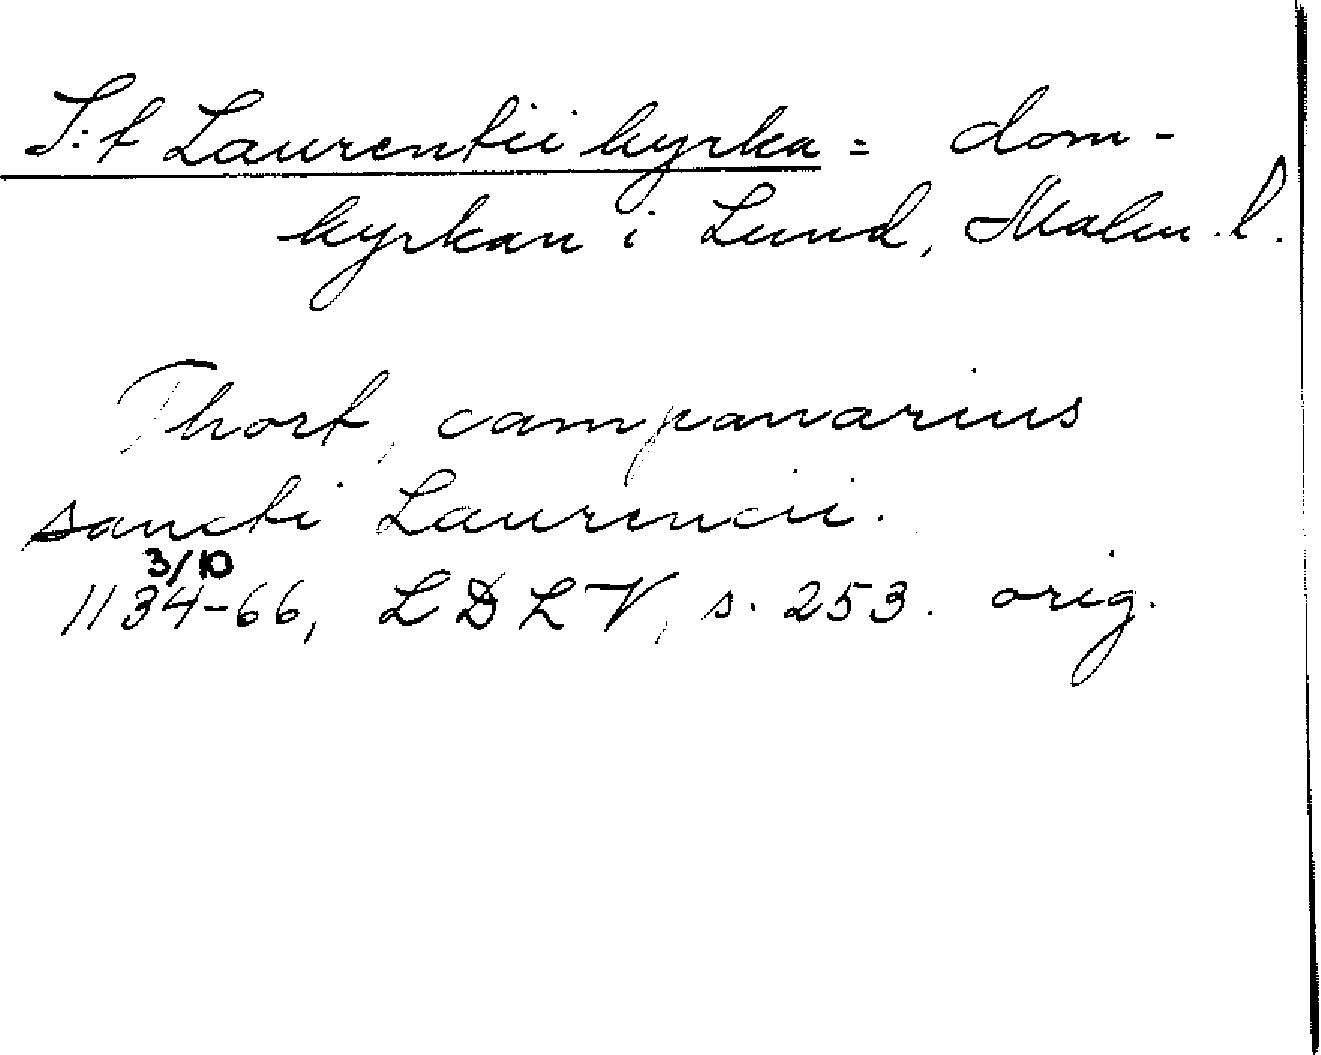 S:t Laurentii kyrka = dom-
kyrkan i Lund, Malm. l.
Thort, campanarius
sancti Laurencii.
3/10
1134-66, LDLV, s. 253. orig.